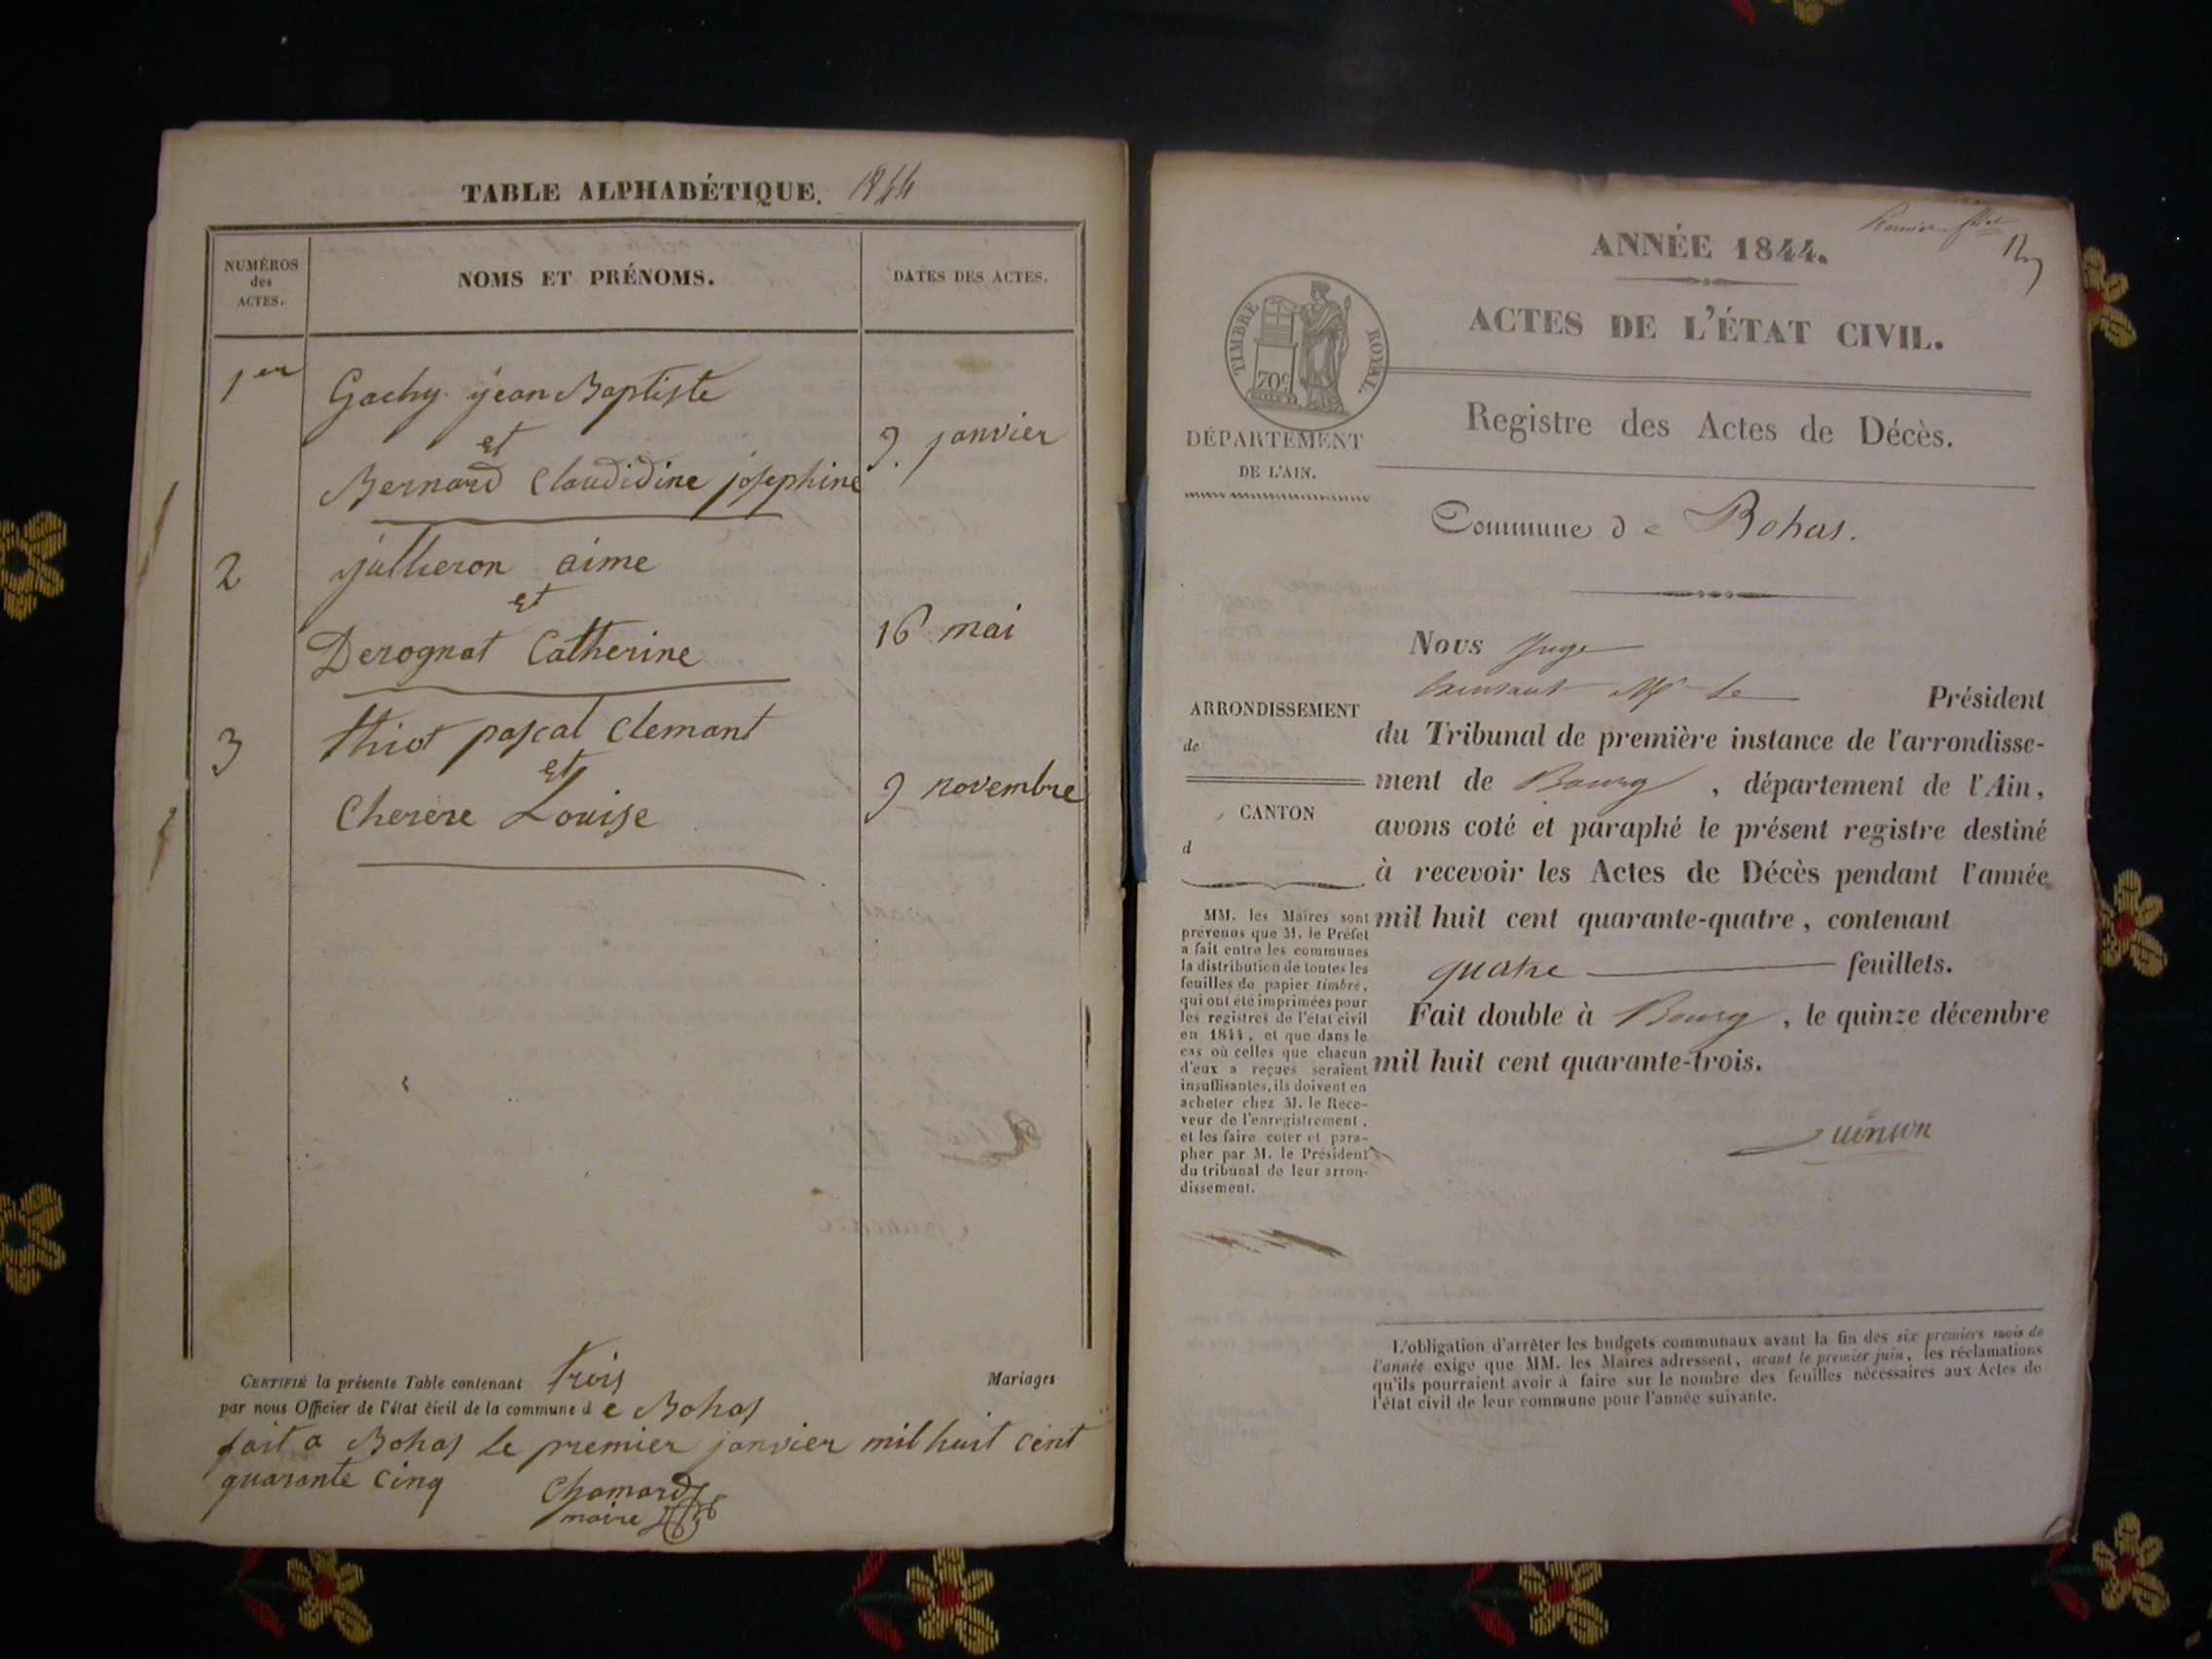 TABLE ALPHABÉTIQUE. 1844
NUMÉROS
des
ACTES.
NOMS ET PRÉNOMS.
DATES DES ACTES.
1er
Gachy jean Baptiste
et
Bernard Claudidine josephine
9. janvier
2
julheron aime
et
Derognat Catherine
16 mai
3
thiot pascal Clemant
et
Cherère Louise
9 novembre
CERTIFIÉ la présente Table contenant trois Mariages
par nous Officier de l'état civil de la commune d e Bohas
fait a Bohas le premier janvier mil huit cent
quarante cinq
Chamard
maire
ANNÉE 1844.
ACTES DE L'ÉTAT CIVIL.
TIMBRE ROYAL.
70c
DÉPARTEMENT
DE L'AIN.
Registre des Actes de Décès.
Commune de Bohas.
ARRONDISSEMENT
de
CANTON
d
MM. les Maires sont
prévenus que M. le Préfet
a fait entre les communes
la distribution de toutes les
feuilles de papier timbré,
qui ont été imprimées pour
les registres de l'état civil
en 1844, et que dans le
cas où celles que chacun
d'eux a reçues seraient
insuffisantes, ils doivent en
acheter chez M. le Rece-
veur de l'enregistrement,
et les faire coter et para-
pher par M. le Président
du tribunal de leur arron-
dissement.
Nous Juge
Mr le Président
du Tribunal de première instance de l'arrondisse-
ment de Bourg, département de l'Ain,
avons coté et paraphé le présent registre destiné
à recevoir les Actes de Décès pendant l'année
mil huit cent quarante-quatre, contenant
quatre feuillets.
Fait double à Bourg, le quinze décembre
mil huit cent quarante-trois.
L'obligation d'arrêter les budgets communaux avant la fin des six premiers mois de
l'année exige que MM. les Maires adressent, avant le premier juin, les réclamations
qu'ils pourraient avoir à faire sur le nombre des feuilles nécessaires aux Actes de
l'état civil de leur commune pour l'année suivante.